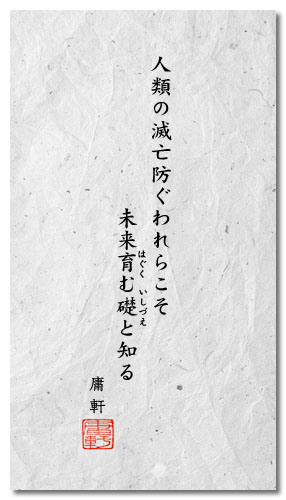 人類の滅亡防ぐわれらこそ
未来育む礎と知る
はぐく いしづえ
庸軒
庸軒